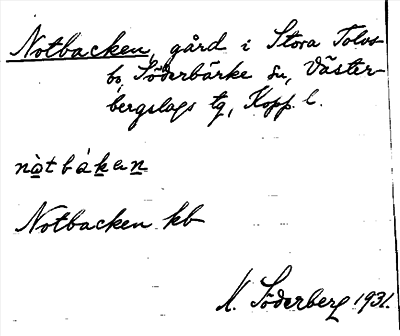 Notbacken, gård i Stora Tolvs-
bo, Söderbärke sn, Väster-
bergslags tg, Kopp. l.
nò̱tbáḵeṉ
Notbacken kb
Söderberg 1931.